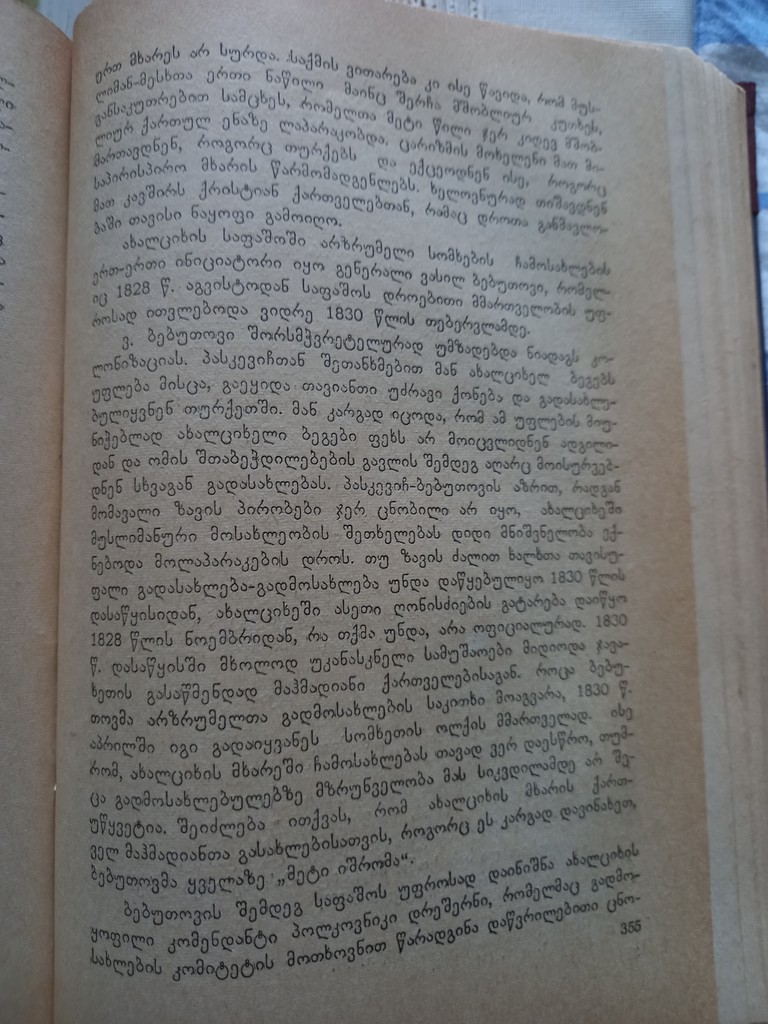 ერთ მხარეს არ სურდა. საქმის ვითარება კი ისე წავიდა, რომ მუს-
ლიმან-მესხთა ერთი ნაწილი მაინც შერჩა მშობლიურ კუთხეს,
განსაკუთრებით სამცხეს, რომელთა მეტი წილი ჯერ კიდევ მშობ-
ლიურ ქართულ ენაზე ლაპარაკობდა. ცარიზმის მოხელენი მათ მი-
მართავდნენ, როგორც თურქებს და ექცეოდნენ ისე, როგორც
საპირისპირო მხარის წარმომადგენლებს. ხელოვნურად თიშავდნენ
მათ კავშირს ქრისტიან ქართველებთან, რამაც დროთა განმავლო-
ბაში თავისი ნაყოფი გამოიღო.
ახალციხის საფაშოში არზრუმელი სომხების ჩამოსახლების
ერთ-ერთი ინიციატორი იყო გენერალი ვასილ ბებუთოვი, რომელ-
იც 1828 წ. აგვისტოდან საფაშოს დროებითი მმართველობის უფ-
როსად ითვლებოდა ვიდრე 1830 წლის თებერვლამდე.
ვ. ბებუთოვი შორსმჭვრეტელურად უმზადებდა ნიადაგს კო-
ლონიზაციას. პასკევიჩთან შეთანხმებით მან ახალციხელ ბეგებს
უფლება მისცა, გაეყიდა თავიანთი უძრავი ქონება და გადასახლე-
ბულიყვნენ თურქეთში. მან კარგად იცოდა, რომ ამ უფლების მიუ-
ნიჭებლად ახალციხელი ბეგები ფეხს არ მოიცვლიდნენ ადგილი-
დან და ომის შთაბეჭდილებების გავლის შემდეგ აღარც მოისურვებ-
დნენ სხვაგან გადასახლებას. პასკევიჩ-ბებუთოვის აზრით, რადგან
მომავალი ზავის პირობები ჯერ ცნობილი არ იყო, ახალციხეში
მუსლიმანური მოსახლეობის შეთხელებას დიდი მნიშვნელობა ექ-
ნებოდა მოლაპარაკების დროს. თუ ზავის ძალით ხალხთა თავისუ-
ფალი გადასახლება-გადმოსახლება უნდა დაწყებულიყო 1830 წლის
დასაწყისიდან, ახალციხეში ასეთი ღონისძიების გატარება დაიწყო
1828 წლის ნოემბრიდან, რა თქმა უნდა, არა ოფიციალურად. 1830
წ. დასაწყისში მხოლოდ უკანასკნელი სამუშაოები მიდიოდა ჯავა-
ხეთის გასაწმენდად მაჰმადიანი ქართველებისაგან. როცა ბებუ-
თოვმა არზრუმელთა გადმოსახლების საკითხი მოაგვარა, 1830 წ.
აპრილში იგი გადაიყვანეს სომხეთის ოლქის მმართველად. ისე
რომ, ახალციხის მხარეში ჩამოსახლებას თავად ვერ დაესწრო, თუმ-
ცა გადმოსახლებულებზე მზრუნველობა მას სიკვდილამდე არ შე-
უწყვეტია. შეიძლება ითქვას, რომ ახალციხის მხარის ქართ-
ველ მაჰმადიანთა გასახლებისათვის, როგორც ეს კარგად დავინახეთ,
ბებუთოვმა ყველაზე „მეტი იშრომა“.
ბებუთოვის შემდეგ საფაშოს უფროსად დაინიშნა ახალციხის
ყოფილი კომენდანტი პოლკოვნიკი დრეშერნი, რომელმაც გადმო-
სახლების კომიტეტის მოთხოვნით წარადგინა დაწვრილებითი ცნო-
355